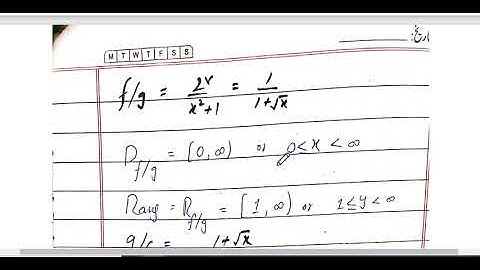 تاریخ:
M T W T F S S
f/g = 2^x/x²+1 = 1/1+√x
D_f/g = [0, ∞) or 0<x<∞
Rang = R_f/g = [1, ∞) or 1≤y<∞
g/f = 1+√x